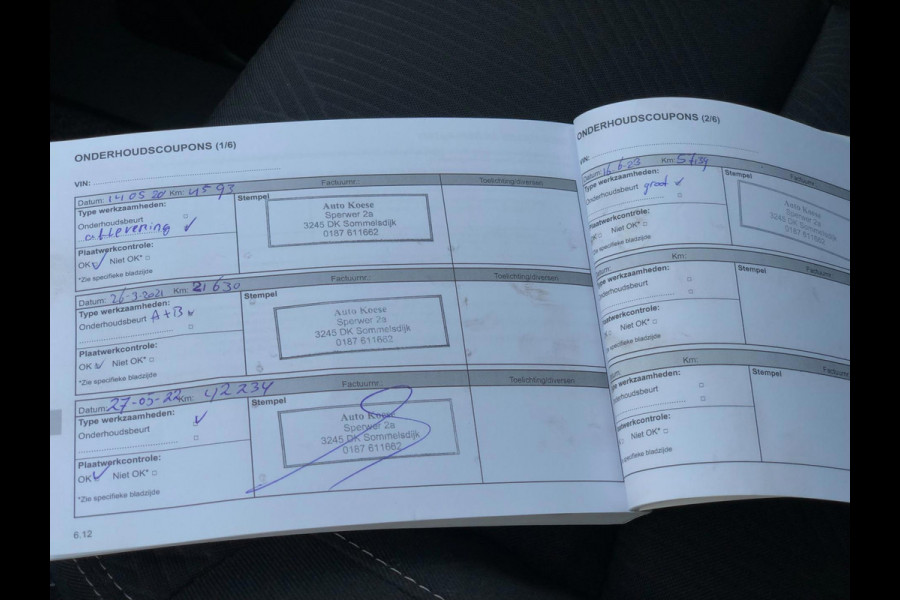 ONDERHOUDSCOUPONS (1/6)
VIN:
Datum: 14 05 20 Km: 4593
Factuurnr.:
Toelichting/diversen:
Type werkzaamheden:
Onderhoudsbeurt
aflevering ✓
Plaatwerkcontrole:
OK ✓ Niet OK* □
*Zie specifieke bladzijde
Stempel
Auto Koese
Sperwer 2a
3245 DK Sommelsdijk
0187 611662
Datum: 26-3-2021 Km: 21630
Factuurnr.:
Toelichting/diversen:
Type werkzaamheden:
Onderhoudsbeurt A+B
Plaatwerkcontrole:
OK ✓ Niet OK* □
*Zie specifieke bladzijde
Stempel
Auto Koese
Sperwer 2a
3245 DK Sommelsdijk
0187 611662
Datum: 27-05-22 Km: 42234
Factuurnr.:
Toelichting/diversen:
Type werkzaamheden: ✓
Onderhoudsbeurt
Plaatwerkcontrole:
OK ✓ Niet OK* □
*Zie specifieke bladzijde
Stempel
Auto Koese
Sperwer 2a
3245 DK Sommelsdijk
0187 611662
6.12
ONDERHOUDSCOUPONS (2/6)
VIN:
Datum: 16-6-23 Km:
Factuurnr.:
Type werkzaamheden:
Onderhoudsbeurt groot ✓
Plaatwerkcontrole:
Niet OK* □
specifieke bladzijde
Stempel
Auto Koese
Sperwer 2a
3245 DK Sommelsdijk
0187 611662
Datum: Km:
Factuurnr.:
Type werkzaamheden:
Onderhoudsbeurt
Plaatwerkcontrole:
Niet OK* □
specifieke bladzijde
Stempel
Km:
Factuurnr.
werkzaamheden:
Onderhoudsbeurt
Plaatwerkcontrole:
Niet OK* □
specifieke bladzijde
Stempel